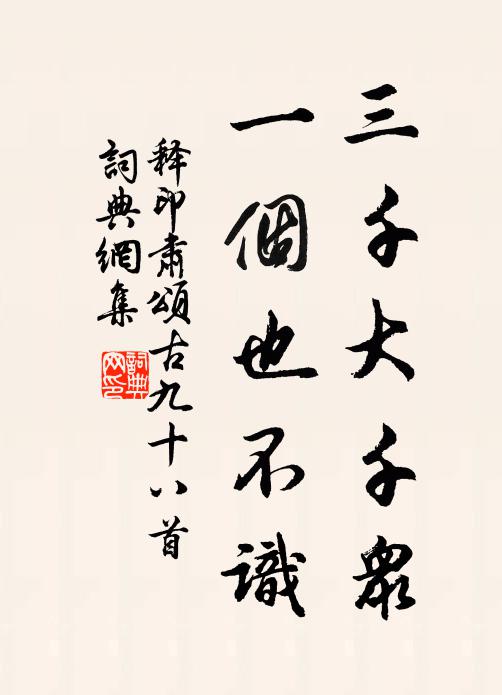 三千大千衆
一個也不識
释印肅頌古九十八首
詞典網集
詞典
网印